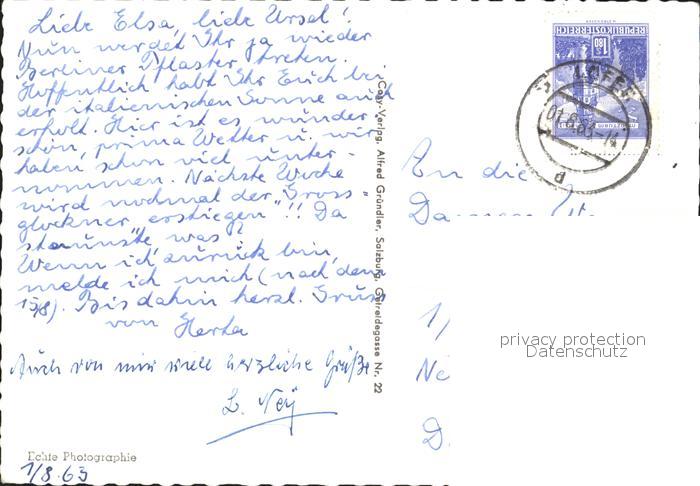 Liebe Elsa, liebe Ursel!
Nun werdet Ihr ja wieder
Berliner Pflaster treten.
Hoffentlich habt Ihr Euch bei
der italienischen Sonne auch
erholt. Hier ist es wunder
schön, prima Wetter u. wir
haben schon viel unter-
nommen. Nächste Woche
wird nochmal der "Gross-
glockner erstiegen"!! Da
staunste was?
Wenn ich zurück bin,
melde ich mich (nach dem
15/8). Bis dahin herzl. Grüsse
von Herta
Auch von mir viele herzliche Grüße
L. Ney
Echte Photographie
1/8.63
Cosy-Verlag, Alfred Gründler, Salzburg, Getreidegasse Nr. 22
REPUBLIK ÖSTERREICH
1.80
LOFER
d
An die
1/
D.
privacy protection
Datenschutz